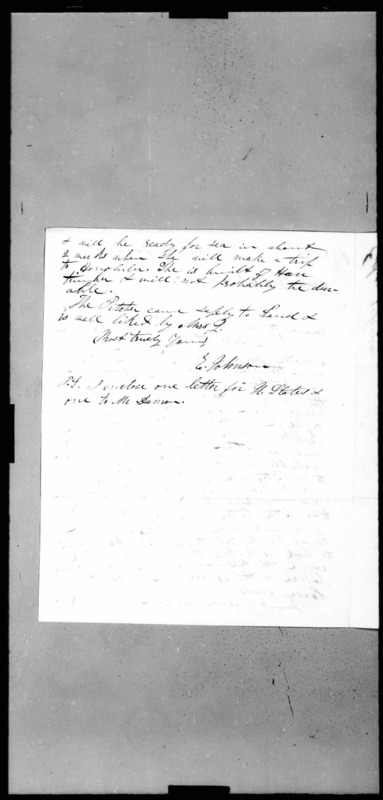 & will be ready for sea in about
2 weeks when she will make a trip
to Honolulu. She is built of Hau
timber & will not probably be
able.
The Pitcher came safely to hand &
is well liked by Mrs J.
Most truly Yours
E. Johnson
P.S. I enclose one letter for U. States &
one to Mr Damon.